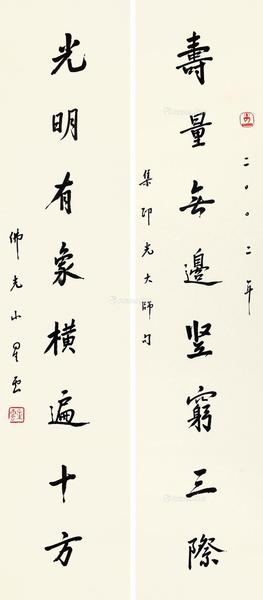 二〇〇二年
壽量無邊豎窮三際
集印光大師句
光明有象橫遍十方
佛光山星雲